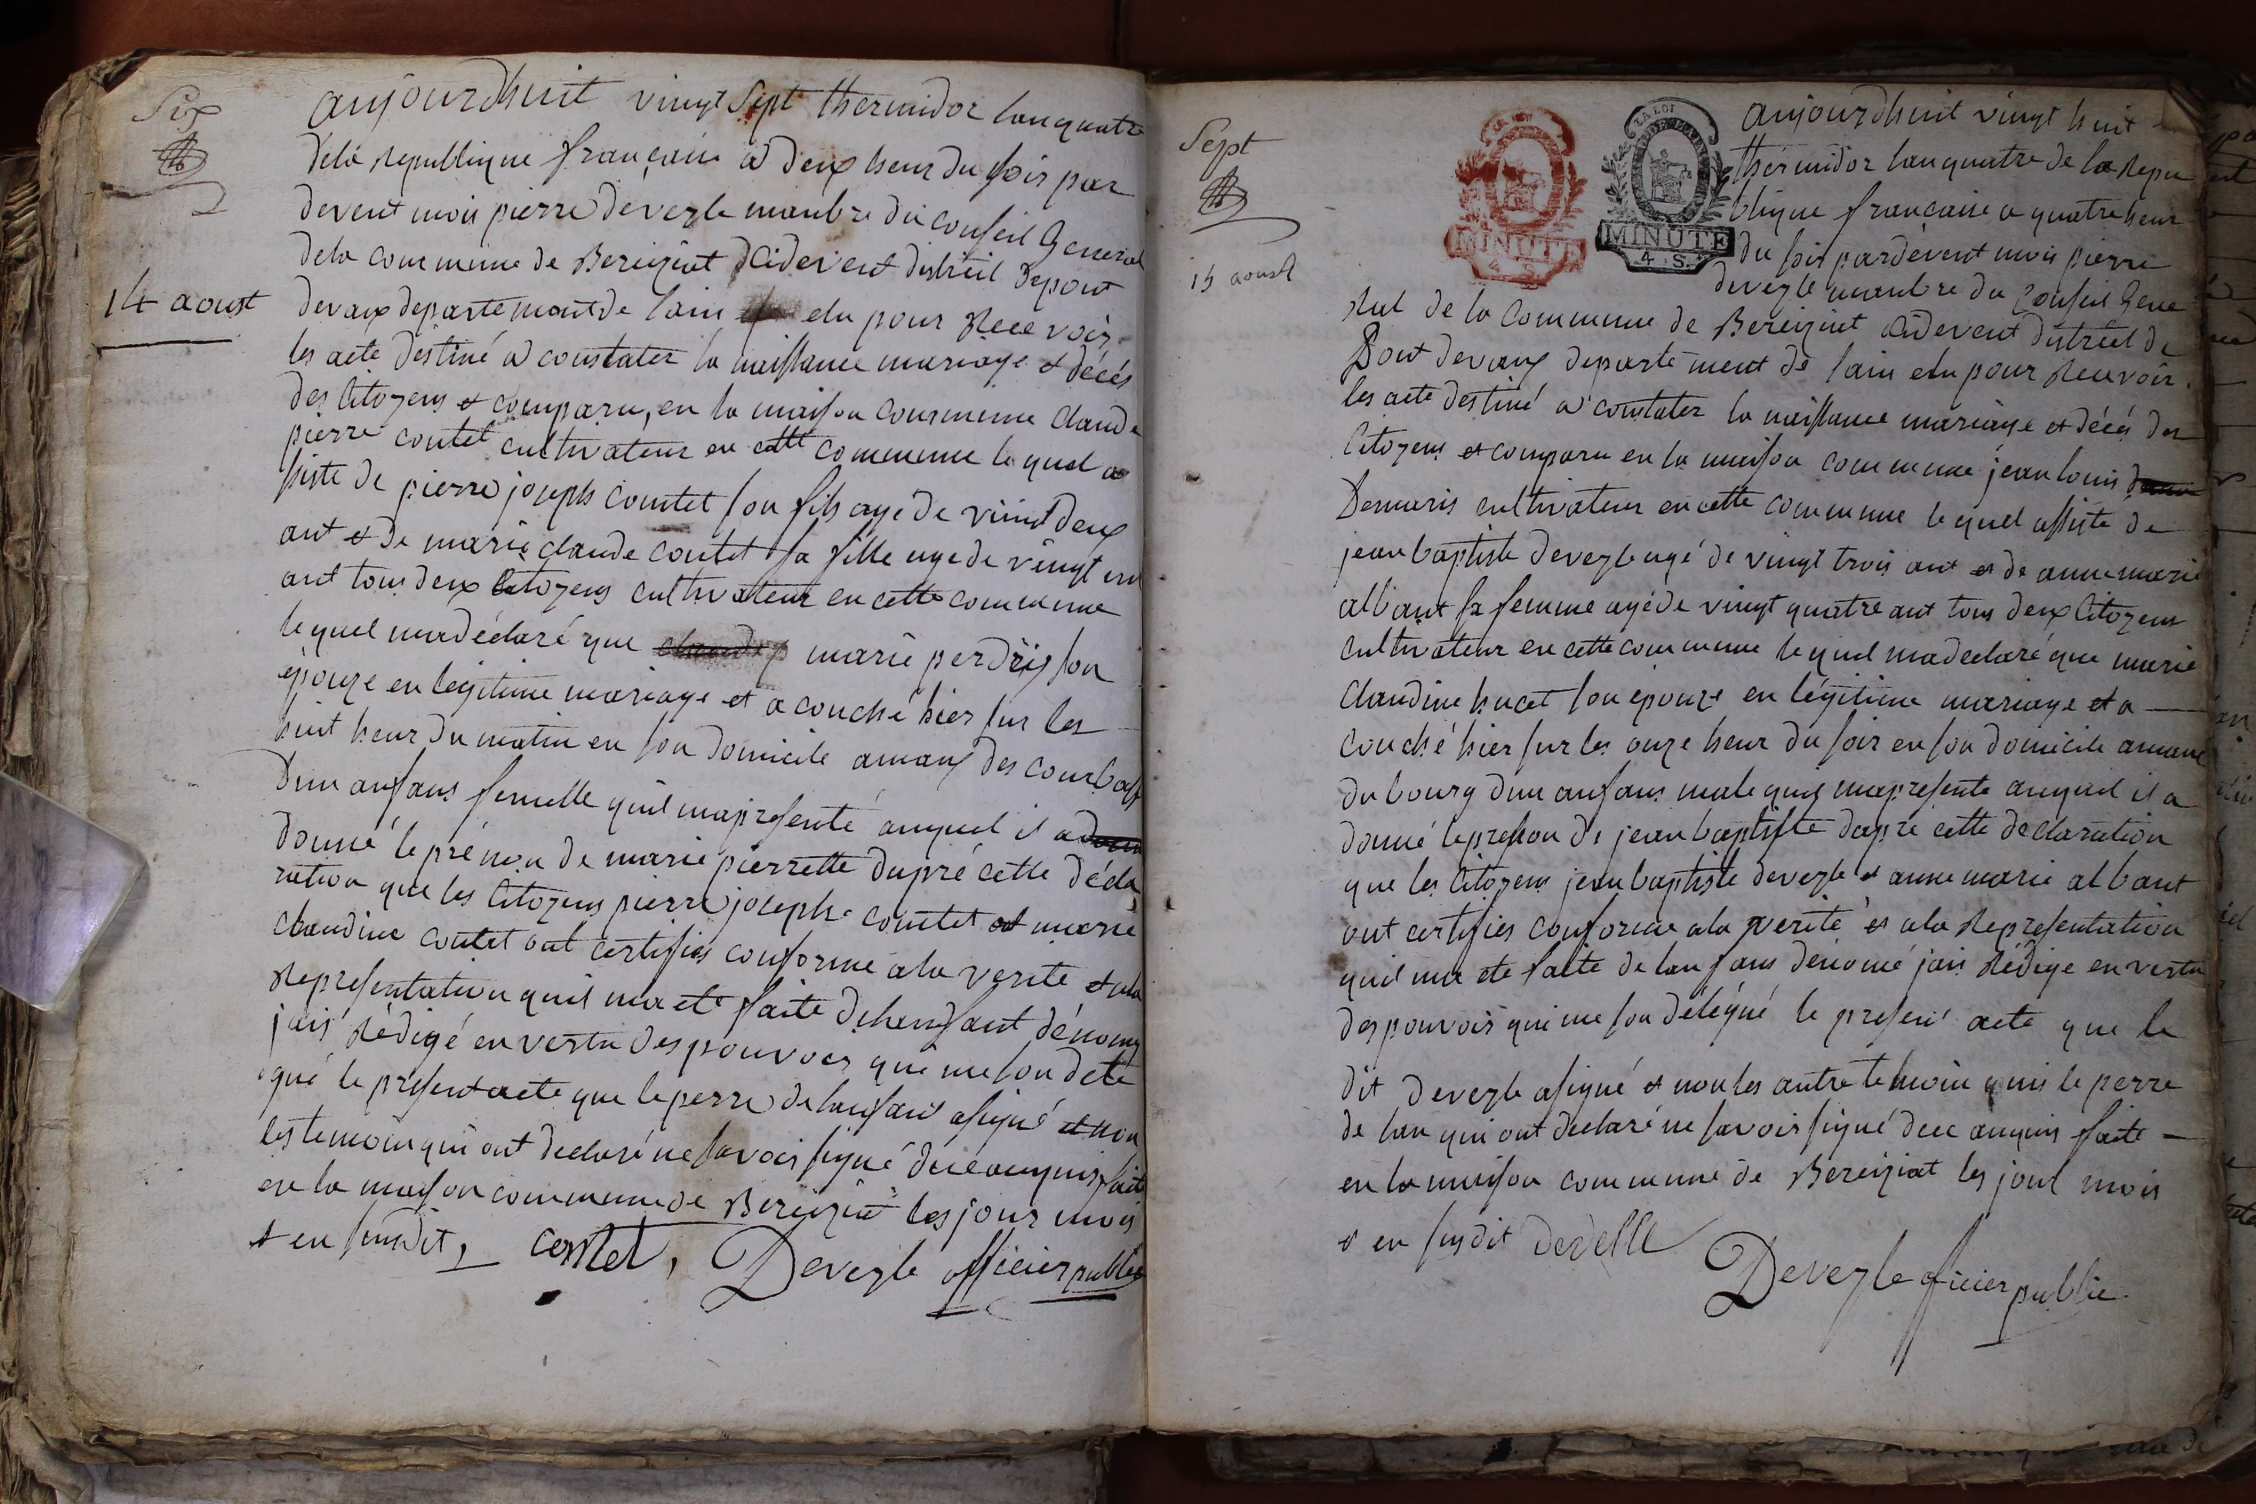 Six
14 aoust
aujourdhuit vingt Sept thermidor lanquatre
déla republique françaice a deux heur du soir par
devent mois pierre devezle manbre du conseil General
dela commune de Bereiziat Cidevent distreil depont
devaux departemant de lain elu pour Recevoir
les acte destiné a constater la naissance mariage et décés
des Citoyens et comparu, en la maison courmenne Claude
pierre contet cultivateur en cette commune lequel a
siste de pierre joseph comtet son fils aye de vint deux
ant et de marie claude contet sa fille aye de vingt un
ant tous deux Citoyens cultivateur en cette commune
lequel madéclaré que marie perdrix son
épouze en légitime mariage et a couché hier sur les
huit heur du matin en son domicile amaux des courbat
dun anfans femelle quil maprésenté auquel il a
donné le prénon de marie pierrette dupré cette décla
ration que les Citoyens pierre joseph comtet et marie
claudine contet ont certifies conforme ala verité et ala
Representation quil ma eté faite delenfant dénomé
jais Rédigé en vertu des pouvoer qui me son délé
gué le présent acte que le perre de lanfans asigné et non
les temoin qui ont declaré ne savoir signé dece anquis fait
en la maison commune de Bereiziat les jour mois
et en susdit, contet, Devezle officier public
Sept
15 aoust
LA LOI
MINUTE
4. S.
LA LOI
MINUTE
4. S.
aujourdhuit vingt huit
thérmidor lanquatre de la Repu
blique francaise a quatre heur
du soir pardevent mois pierre
devezle manbre du Conseil Gene
ral de la Commune de Bereiziat Cidevent distreil de
Pont devaux departement de lain elu pour Recevoir
les acte destiné a constater la naissance mariage et décés des
Citoyens et comparu en la maison commune jean louis
Desmaris cultivateur en cette commune lequel assiste de
jean baptiste devezle agé de vingt trois ant et de anne marie
albant sa femme ayé de vingt quatre ant tous deux Citoyens
cultivateur en cette commune lequel madeclaré que marie
Claudine hucet son epouze en légitime mariage et a
couché hier sur les onze heur du soir en son domicile amaux
du bourg dun anfans male quil maprésente auquel il a
donné le presnon de jean baptiste daprè cette declaration
que les Citoyens jean baptiste devezle et anne marie albant
ont certifies conforme ala verité et ala Representation
quil ma ete faite de lanfans dénomé jais Rédige en vertu
des pouvoir qui me son délégué le presen acte que le
dit devezle asigné et non les autre temoin anis le perre
de lan qui ont declaré ne savoir signé dece anquis faite
en la maison commune de Bereiziat les jour mois
et en susdit develle
Devezle oficier public